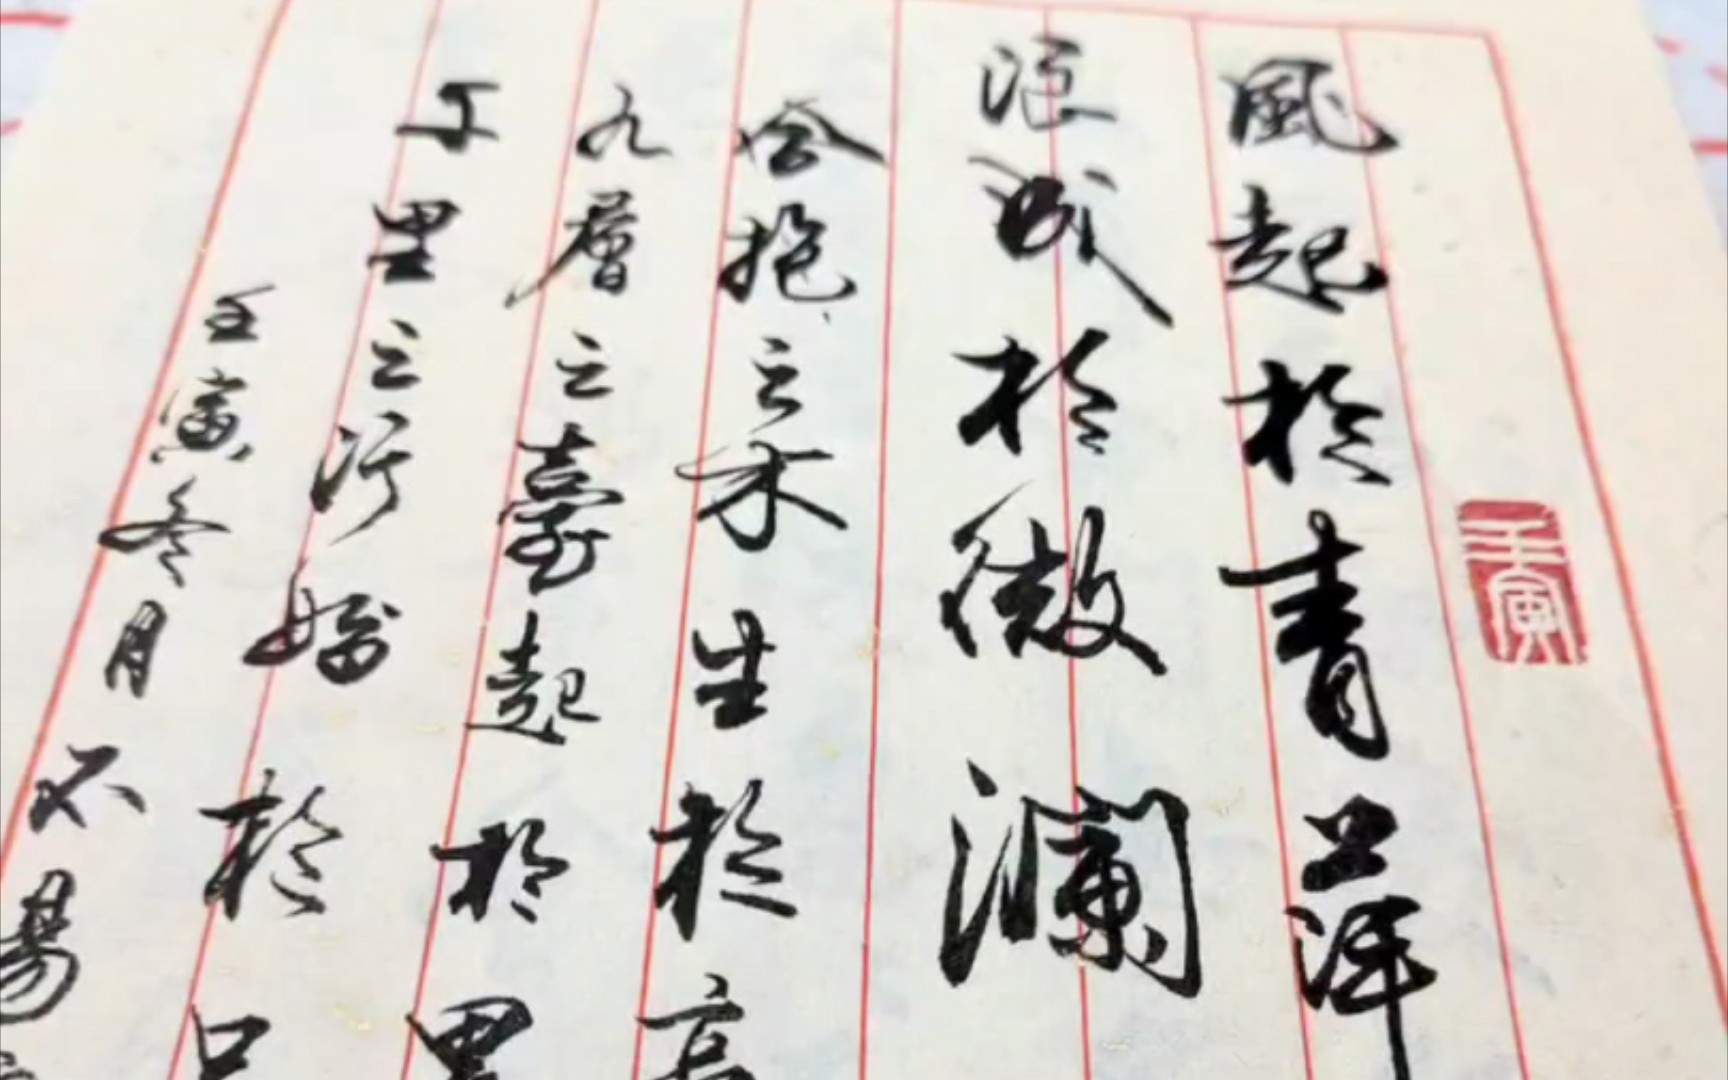 風起於青萍
浪成於微瀾
合抱之木生於
九層之臺起於累
千里之行始於
壬寅冬月不易
壬寅